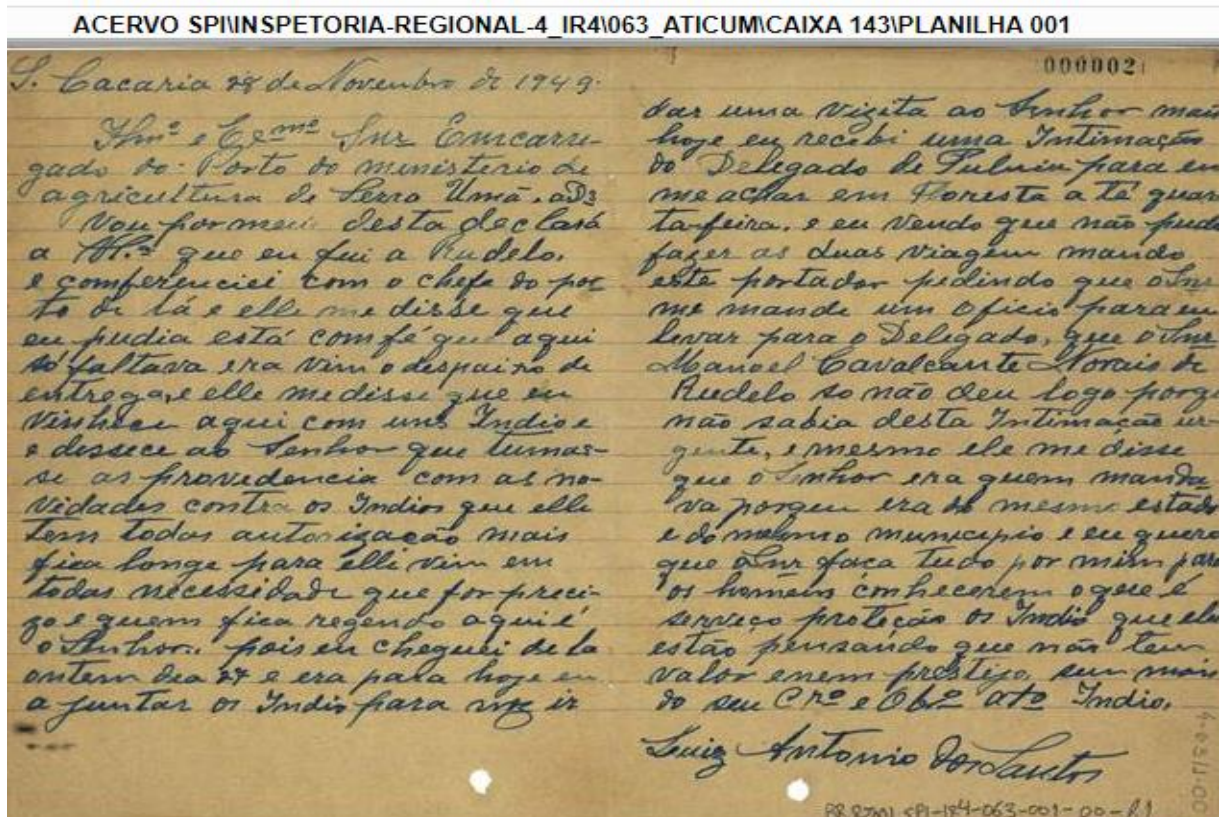 ACERVO SPI\INSPETORIA-REGIONAL-4_IR4\063_ATICUM\CAIXA 143\PLANILHA 001
000002
S. Cacaria 28 de Novembro de 1949.
Ilmº e Exmº Snr Emcarre-
gado do Posto do ministerio de
agricultura de Serra Umã.
Vou por meio desta declará
a que eu fui a Rudelo,
e comferenciei com o chefe do pos
to de lá e elle me disse que
eu pudia está com fé que aqui
só faltava era vim o despaixo de
entrega, e elle me disse que eu
vinhece aqui com uns Indio e
e dissece ao Senhor que tumas-
se as providencia com as no-
vidades contra os Indios que elle
tem todas autorização mais
fica longe para elle vim em
todas necessidade que for preci-
zo e quem fica regendo aqui é
o Senhor. pois eu cheguei de la
ontem dia 27 e era para hoje eu
a juntar os Indio para nóz ir
dar uma vizita ao Senhor mais
hoje eu recebi uma Intimação
do Delegado de Pulicia para eu
me achar em Floresta a té quar
ta feira. e eu vendo que não pude
fazer as duas viagem mando
este portador pedindo que o Snr
me mande um oficio para eu
levar para o Delegado, que o Snr
Manoel Cavalcante Novais de
Rudelo so não deu logo porqe
não sabia desta Intimação ur-
gente, e mesmo ele me disse
que o Senhor era quem manda
va porqeu era do mesmo estado
e do mesmo municipio e eu quero
que o Snr faca tudo por mim para
os homens conhecerem o que é
serviço proteção os Indio que eles
estão pensando que não tem
valor enem prestijo, sem mais
do seu Crº e Obº atº Indio.
Luiz Antonio dos Santos